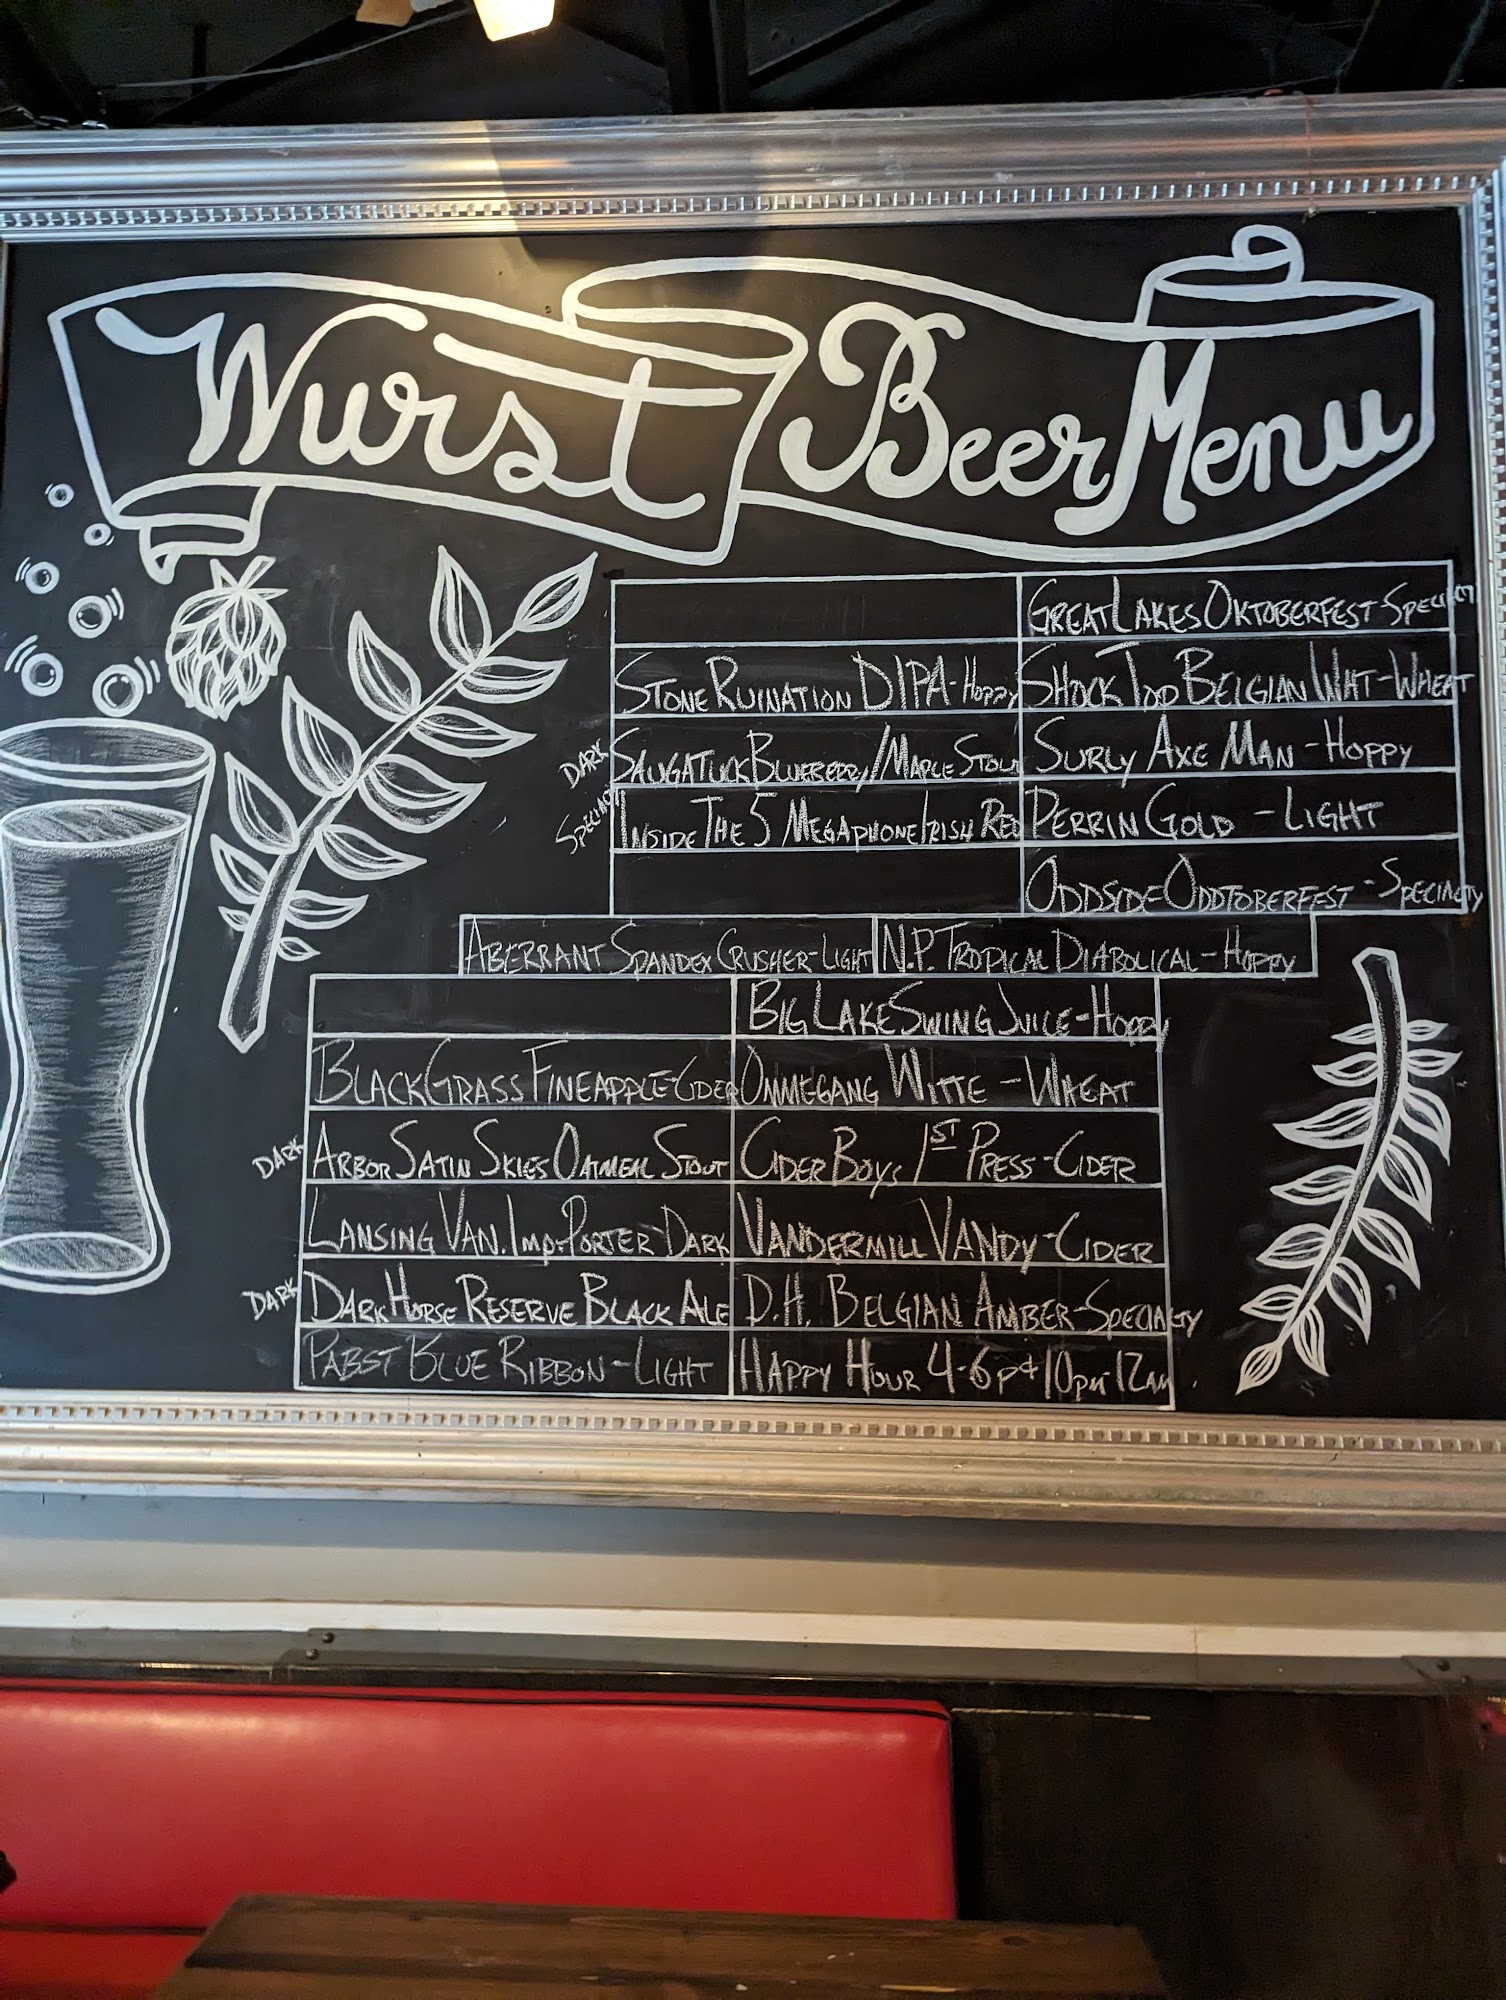 Wurst Beer Menu
GREAT LAKES OKTOBERFEST-SPECIALTY
STONE RUINATION DIPA-HOPPY
SHOCK TOP BELGIAN WHT-WHEAT
DARK SAUGATUCK BLUEBERRY/MAPLE STOUT
SURLY AXE MAN-HOPPY
SPECIALTY INSIDE THE 5 MEGAPHONE IRISH RED
PERRIN GOLD-LIGHT
ODDSIDE-ODDTOBERFEST-SPECIALTY
ABERRANT SPANDEX CRUSHER-LIGHT
N.P. TROPICAL DIABOLICAL-HOPPY
BIG LAKE SWING JUICE-HOPPY
BLACKGRASS FINEAPPLE-CIDER
OMMEGANG WITTE-WHEAT
DARK ARBOR SATIN SKIES OATMEAL STOUT
CIDER BOYS 1ST PRESS-CIDER
LANSING VAN. IMP. PORTER-DARK
VANDERMILL VANDY-CIDER
DARK DARK HORSE RESERVE BLACK ALE
D.H. BELGIAN AMBER-SPECIALTY
PABST BLUE RIBBON-LIGHT
HAPPY HOUR 4-6P+10PM-12AM